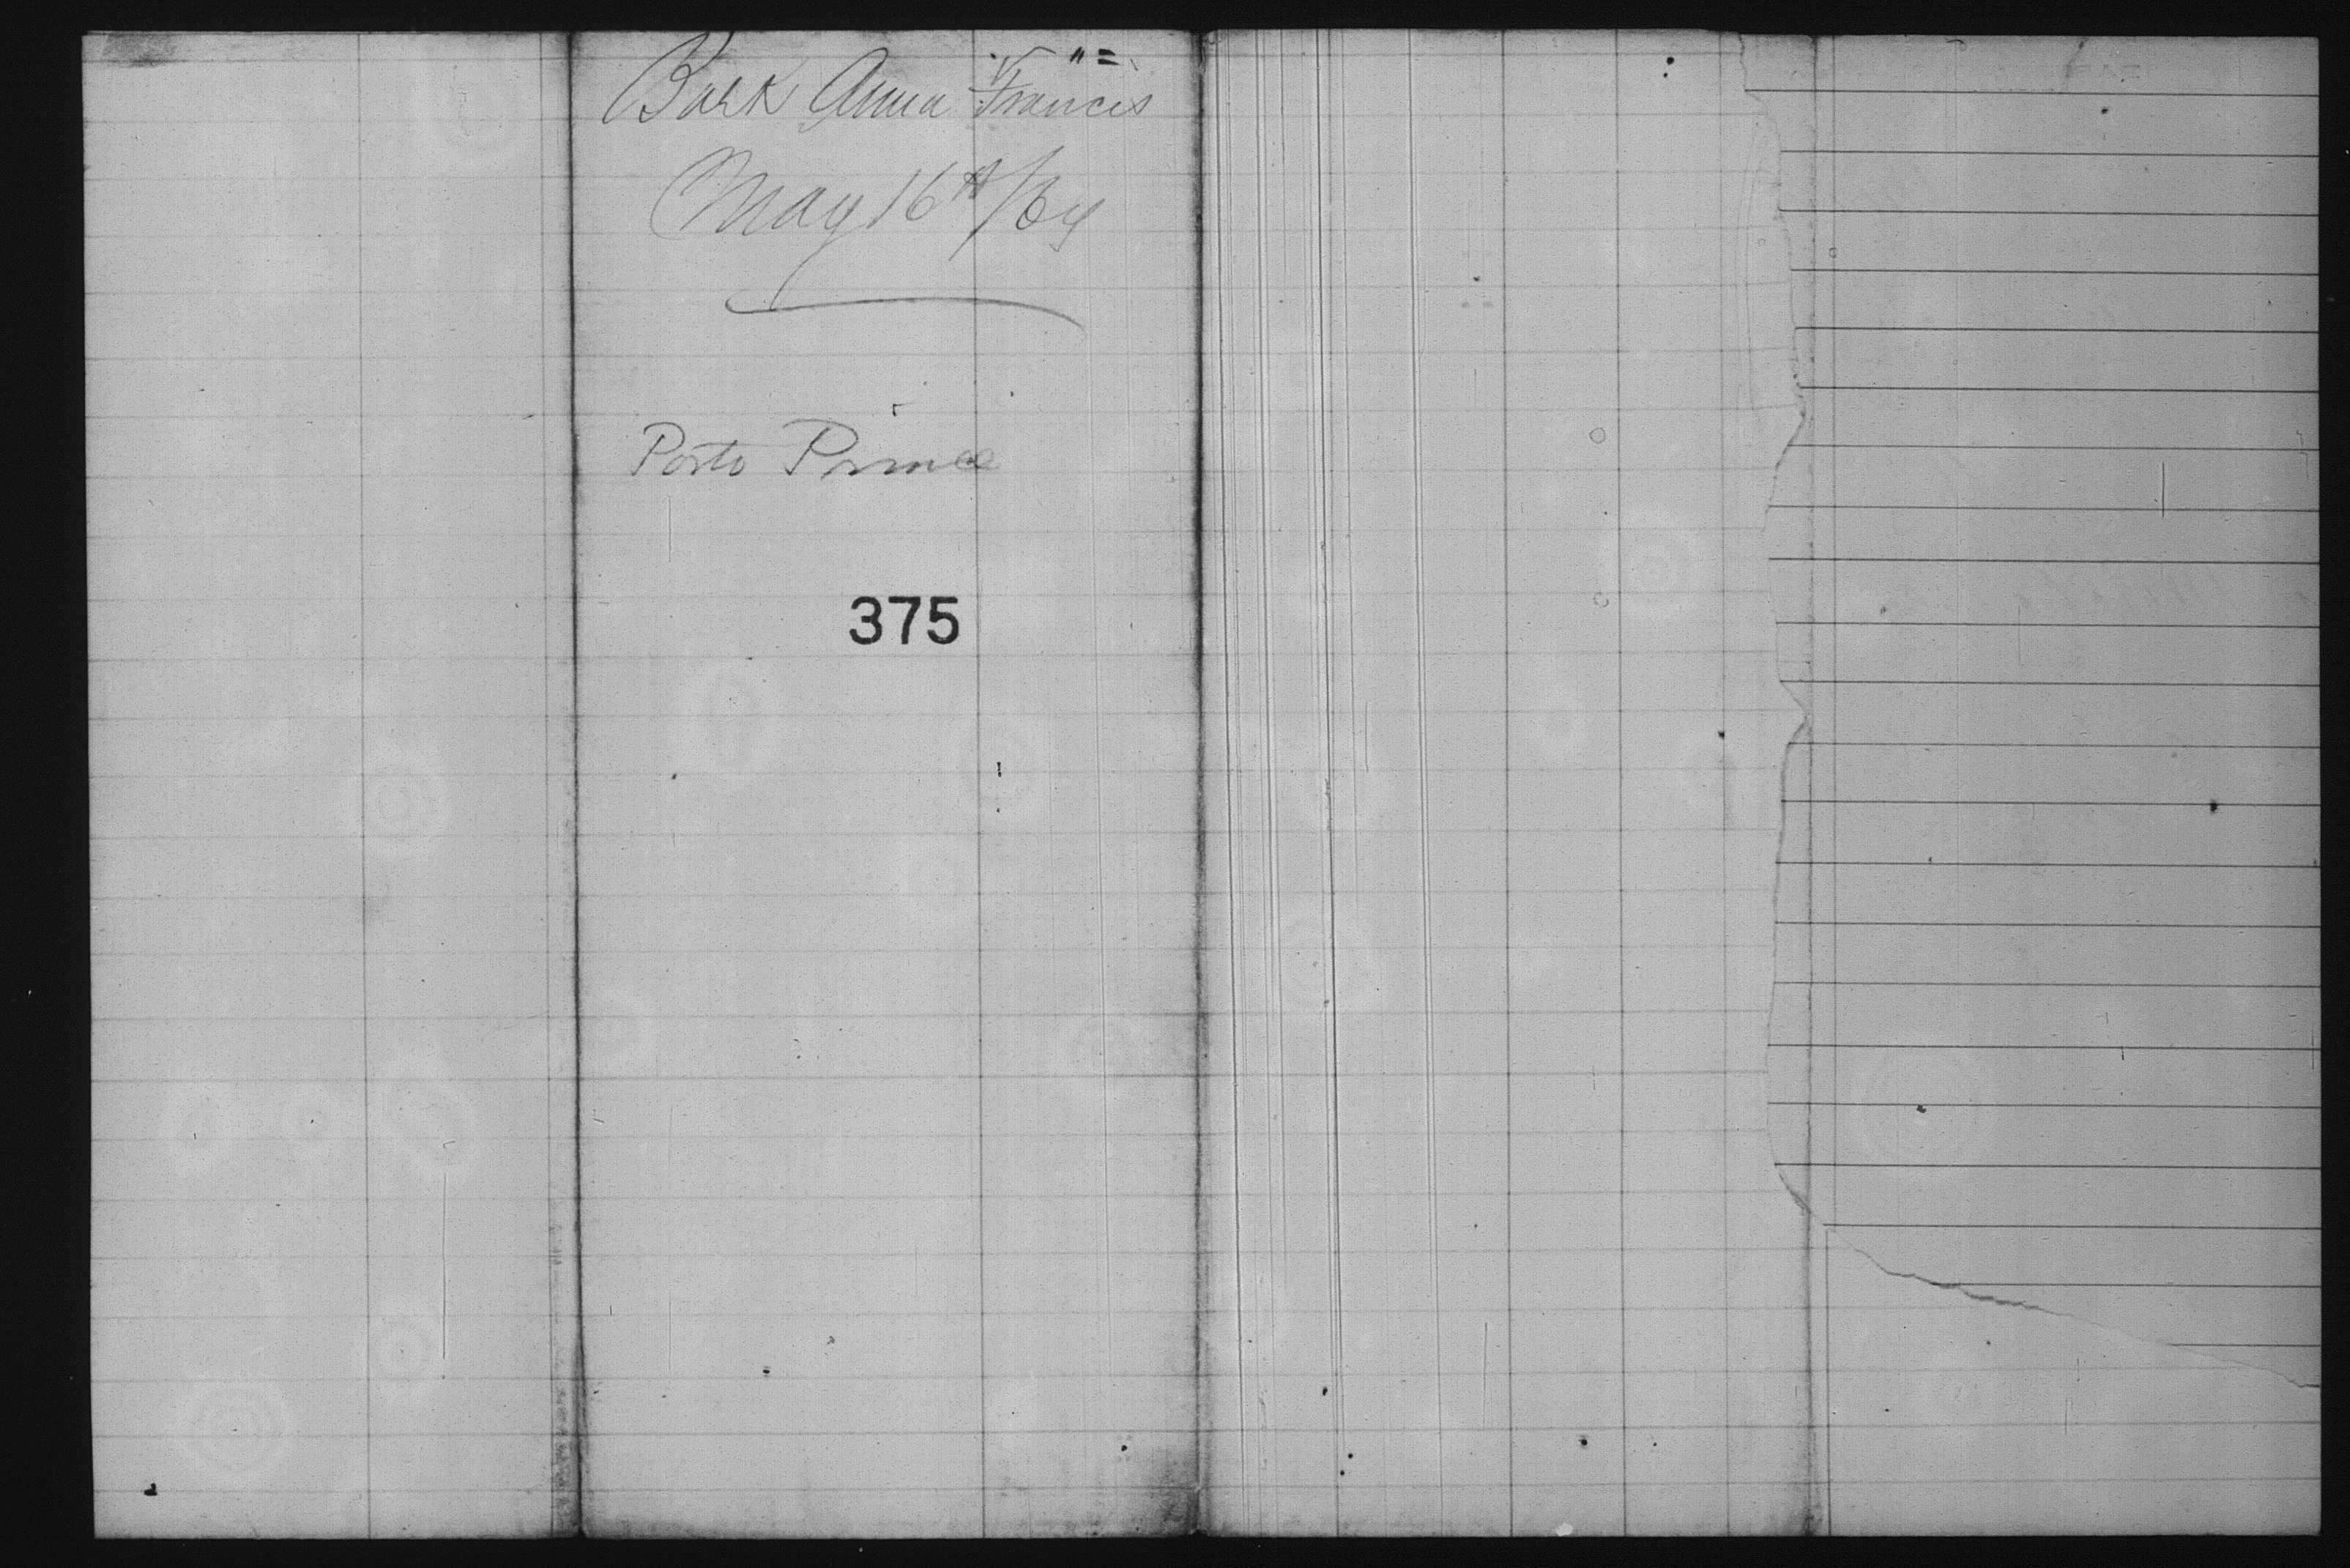 Bark Anna Francis
May 16th/64
Porto Prince
375